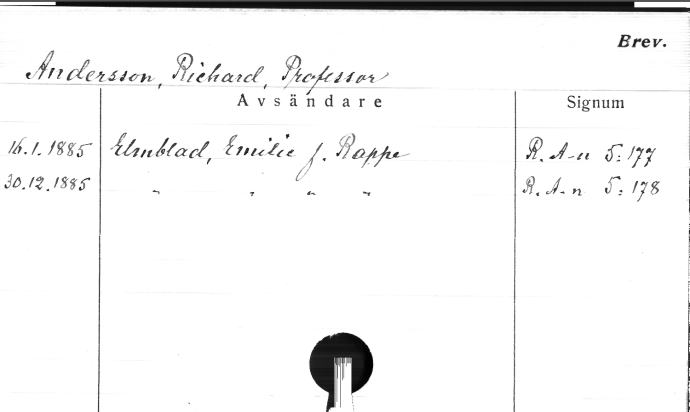 Brev.
Andersson, Richard, Professor
Avsändare Signum
16.1.1885 Elmblad, Emilie f. Rappe R. A-n 5:177
30.12.1885 " " " " R. A-n 5:178